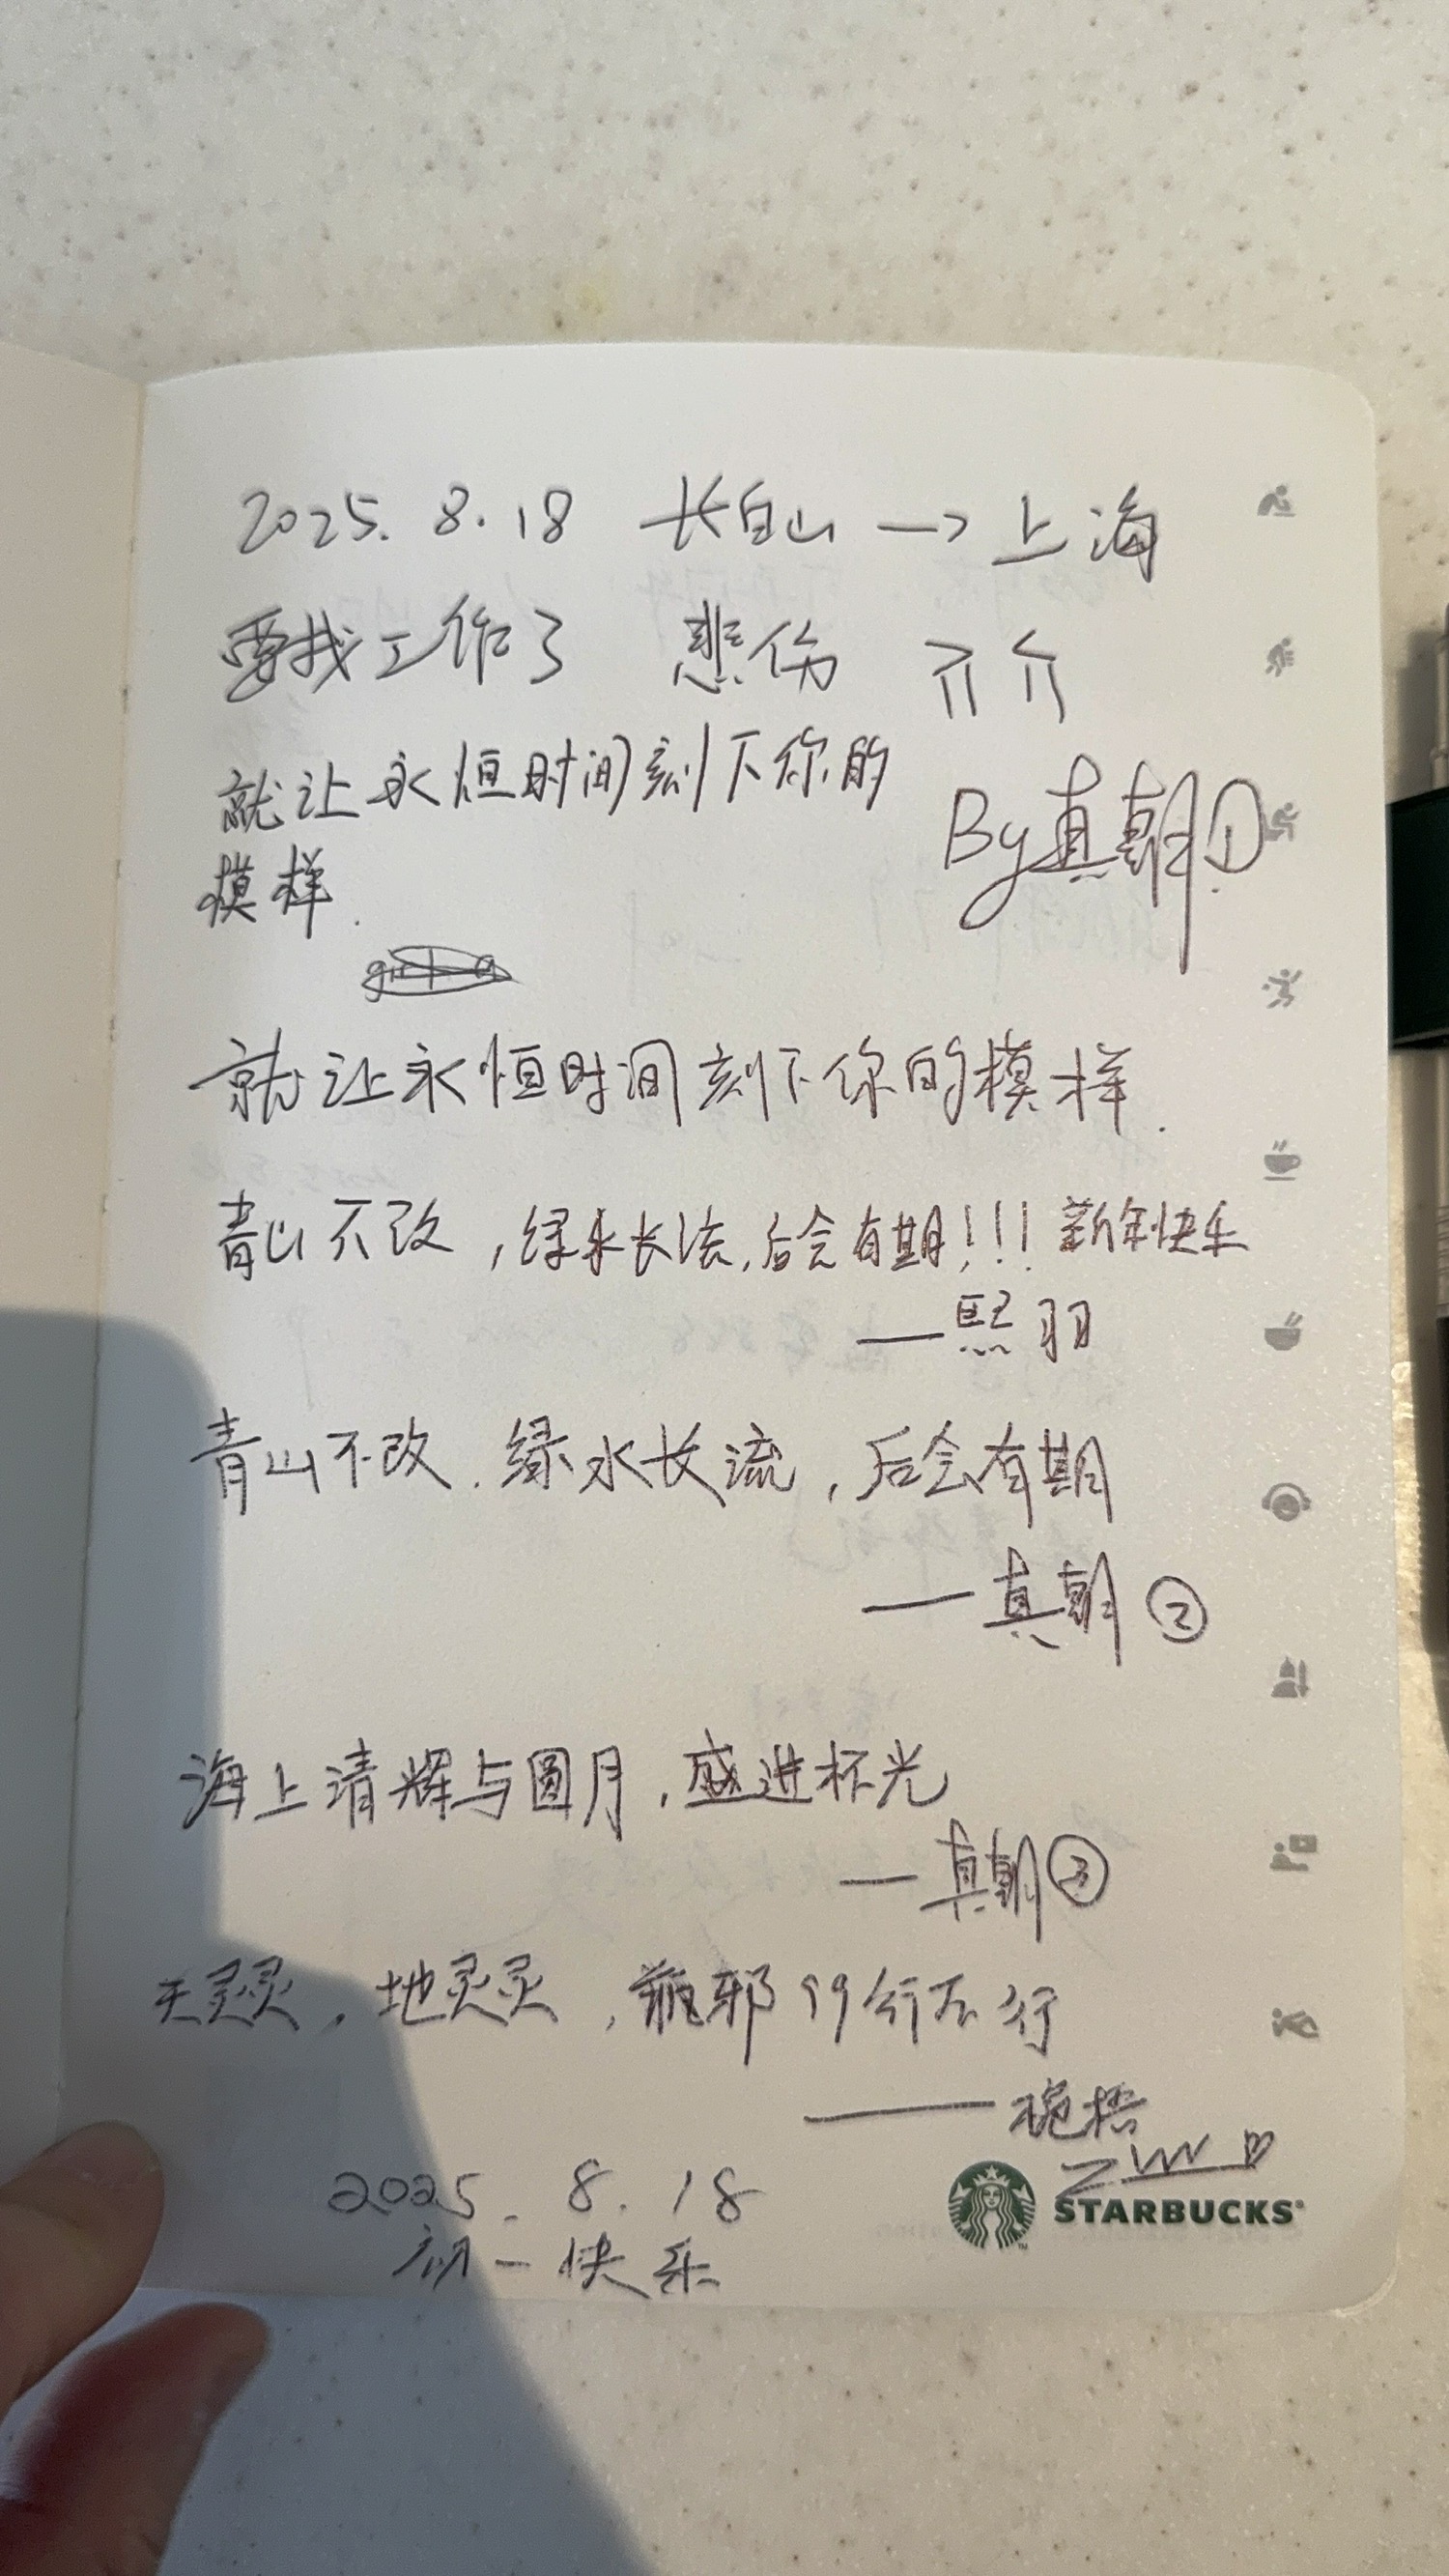 2025. 8. 18 长白山 —> 上海
要找工作了 悲伤
就让永恒时间刻下你的
模样.
By真朝①
就让永恒时间刻下你的模样.
青山不改,绿水长流,后会有期!!! 新年快乐
——熙羽
青山不改.绿水长流,后会有期
——真朝②
海上清辉与圆月,盛进杯光
—真朝③
天灵灵,地灵灵,瓶邪99行不行
STARBUCKS
2025. 8. 18
初一快乐